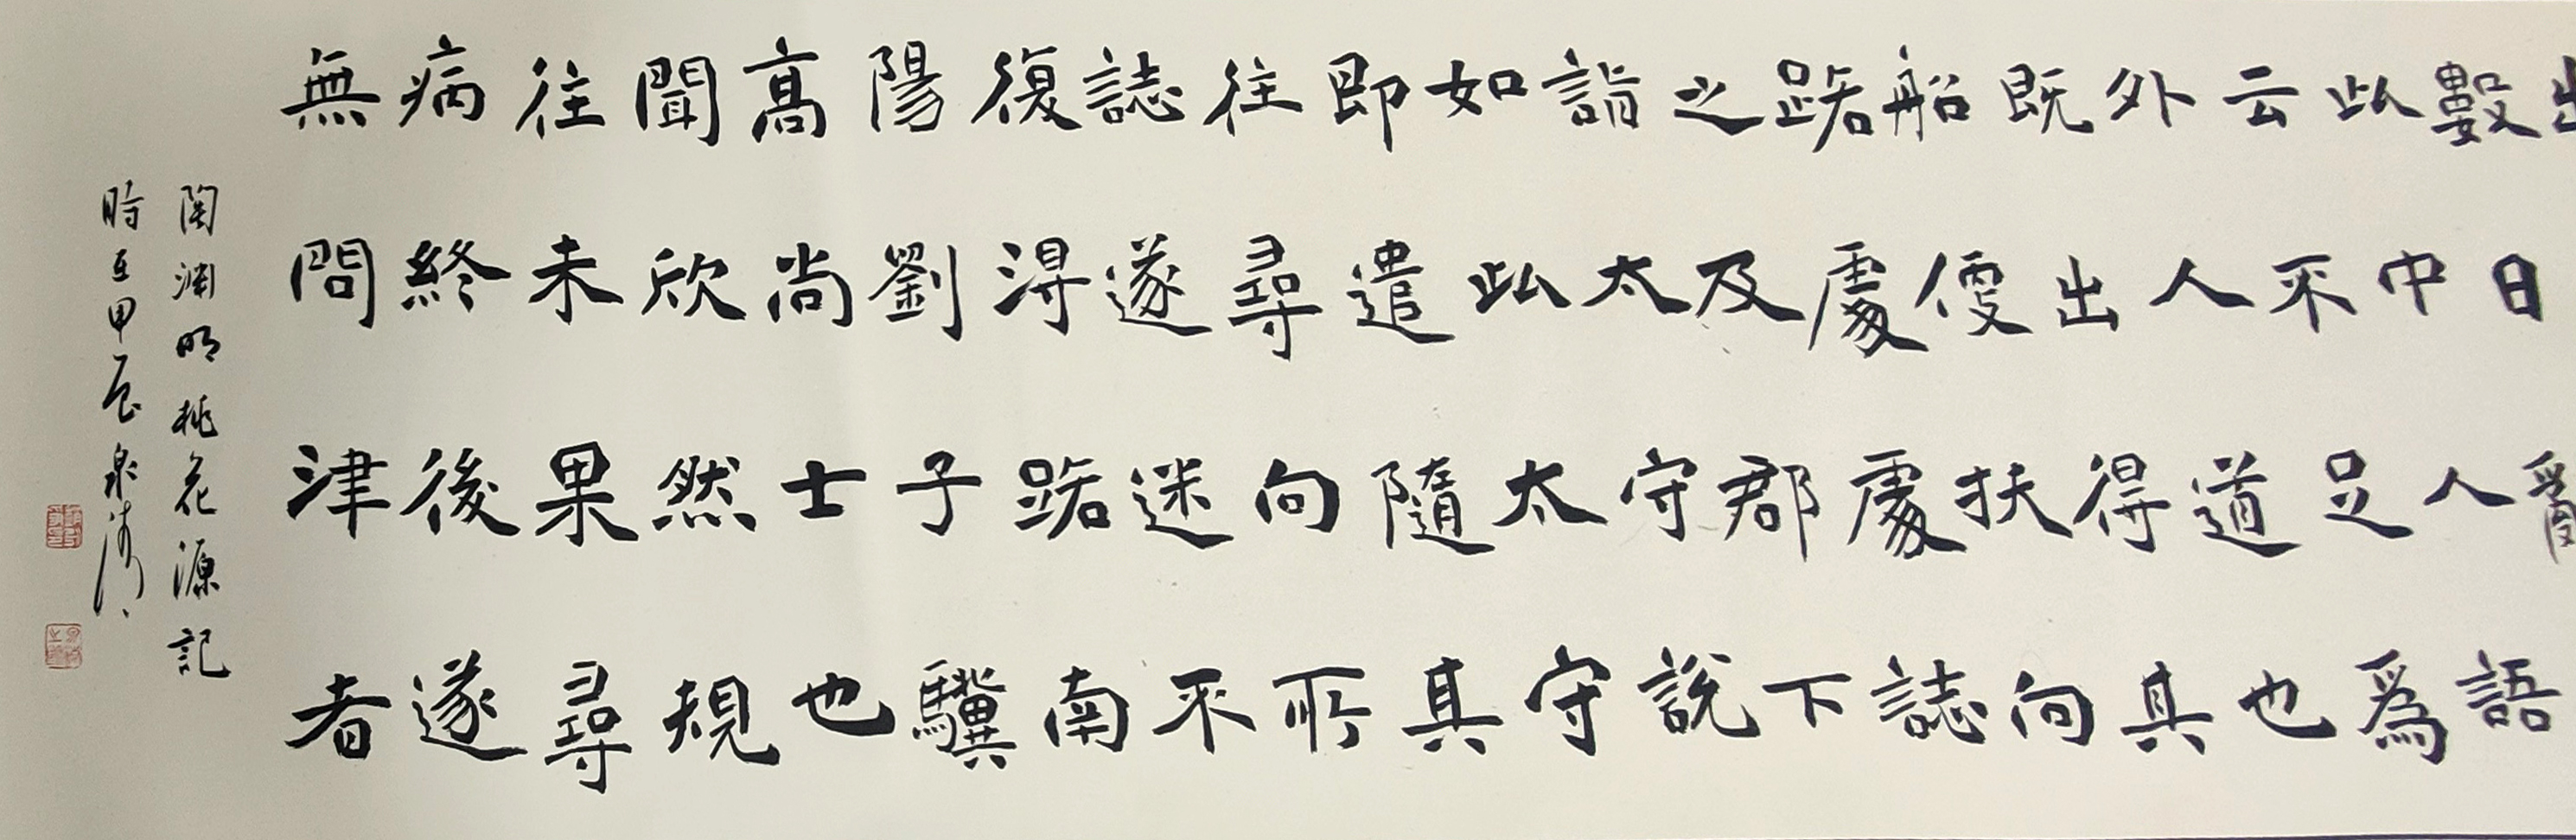 數日
此中人語
云不足爲
外人道也
既出得其
船便扶向
路處處誌
之及郡下
詣太守說
如此太守
即遣隨其
往尋向所
誌遂迷不
復得路南
陽劉子驥
高尚士也
聞欣然規
往未果尋
病終後遂
無問津者
陶渊明桃花源記
時在甲辰泉